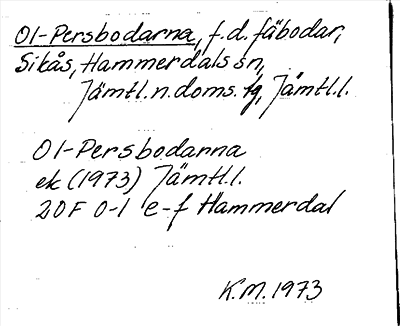 Ol-Persbodarna, f.d. fäbodar,
Sikås, Hammerdals sn,
Jämtl.n.doms. tg, Jämtl.l.
Ol-Persbodarna
ek (1973) Jämtl.l.
20F 0-1 e-f Hammerdal
K.M. 1973